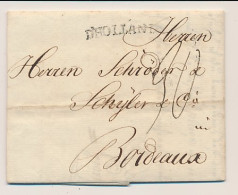 D'HOLLANDE
Herren
Herren Schröder &
Schÿler & Co:
Bordeaux